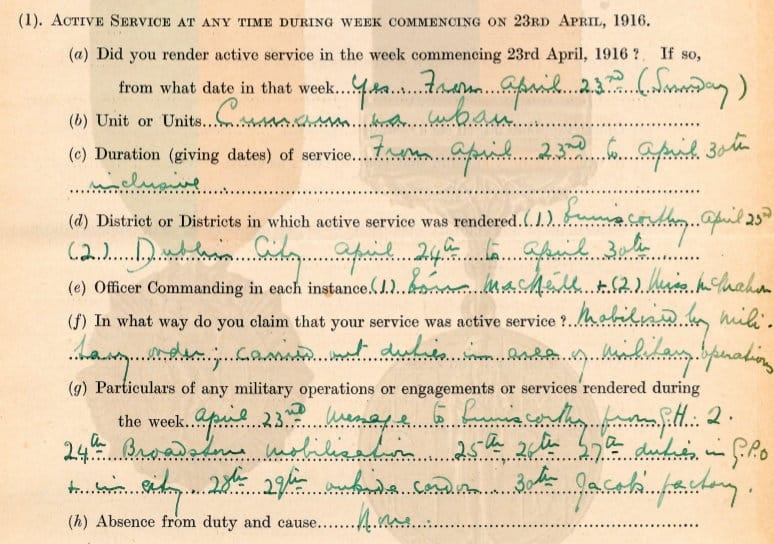 (1). ACTIVE SERVICE AT ANY TIME DURING WEEK COMMENCING ON 23RD APRIL, 1916.
(a) Did you render active service in the week commencing 23rd April, 1916? If so,
from what date in that week...Yes... From April 23rd (Sunday)
(b) Unit or Units...Cumann na mban
(c) Duration (giving dates) of service...From April 23rd to April 30th
inclusive
(d) District or Districts in which active service was rendered.(1). Enniscorthy April 23d
(2) Dublin City April 24th to April 30th
(e) Officer Commanding in each instance.(1). Eóin MacNeill + (2) Miss McMahon
(f) In what way do you claim that your service was active service?..Mobilised by mili-
tary order; carried out duties in area of military operations
(g) Particulars of any military operations or engagements or services rendered during
the week...April 23rd Message to Enniscorthy from G.H.2.
24th Broadstone mobilisation 25th, 26th 27th duties in G.P.O
+ in city. 28th 29th outside cordon. 30th Jacob's factory.
(h) Absence from duty and cause......None.